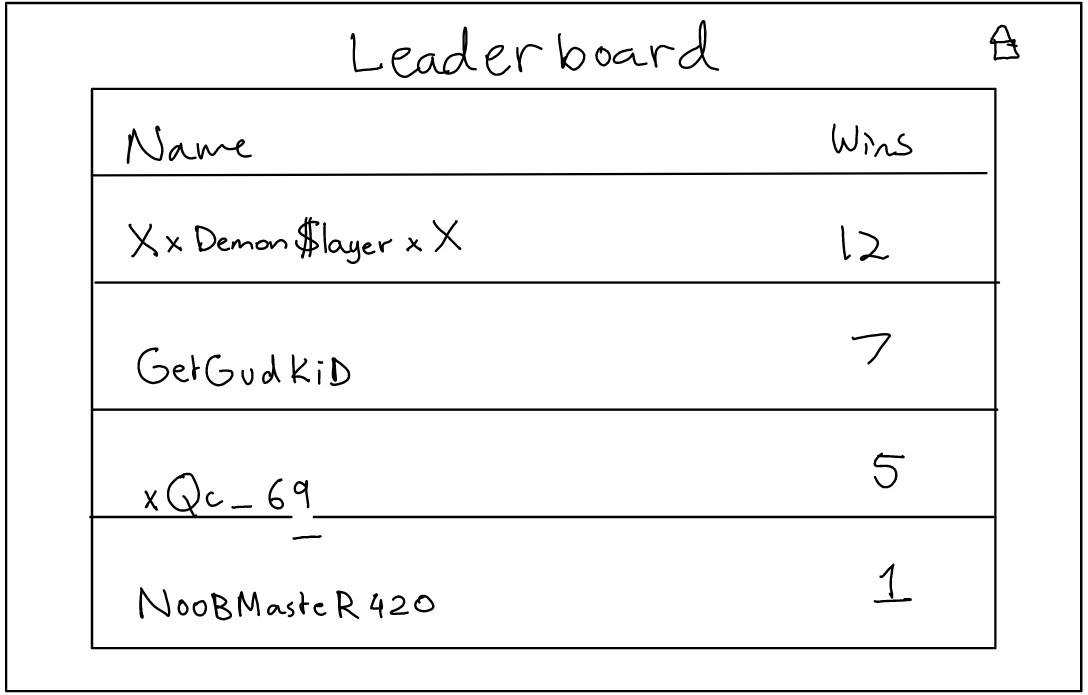 Leaderboard
Name Wins
XxDemon$layerxX 12
GetGudKiD 7
xQc_69 5
NooBMasteR420 1